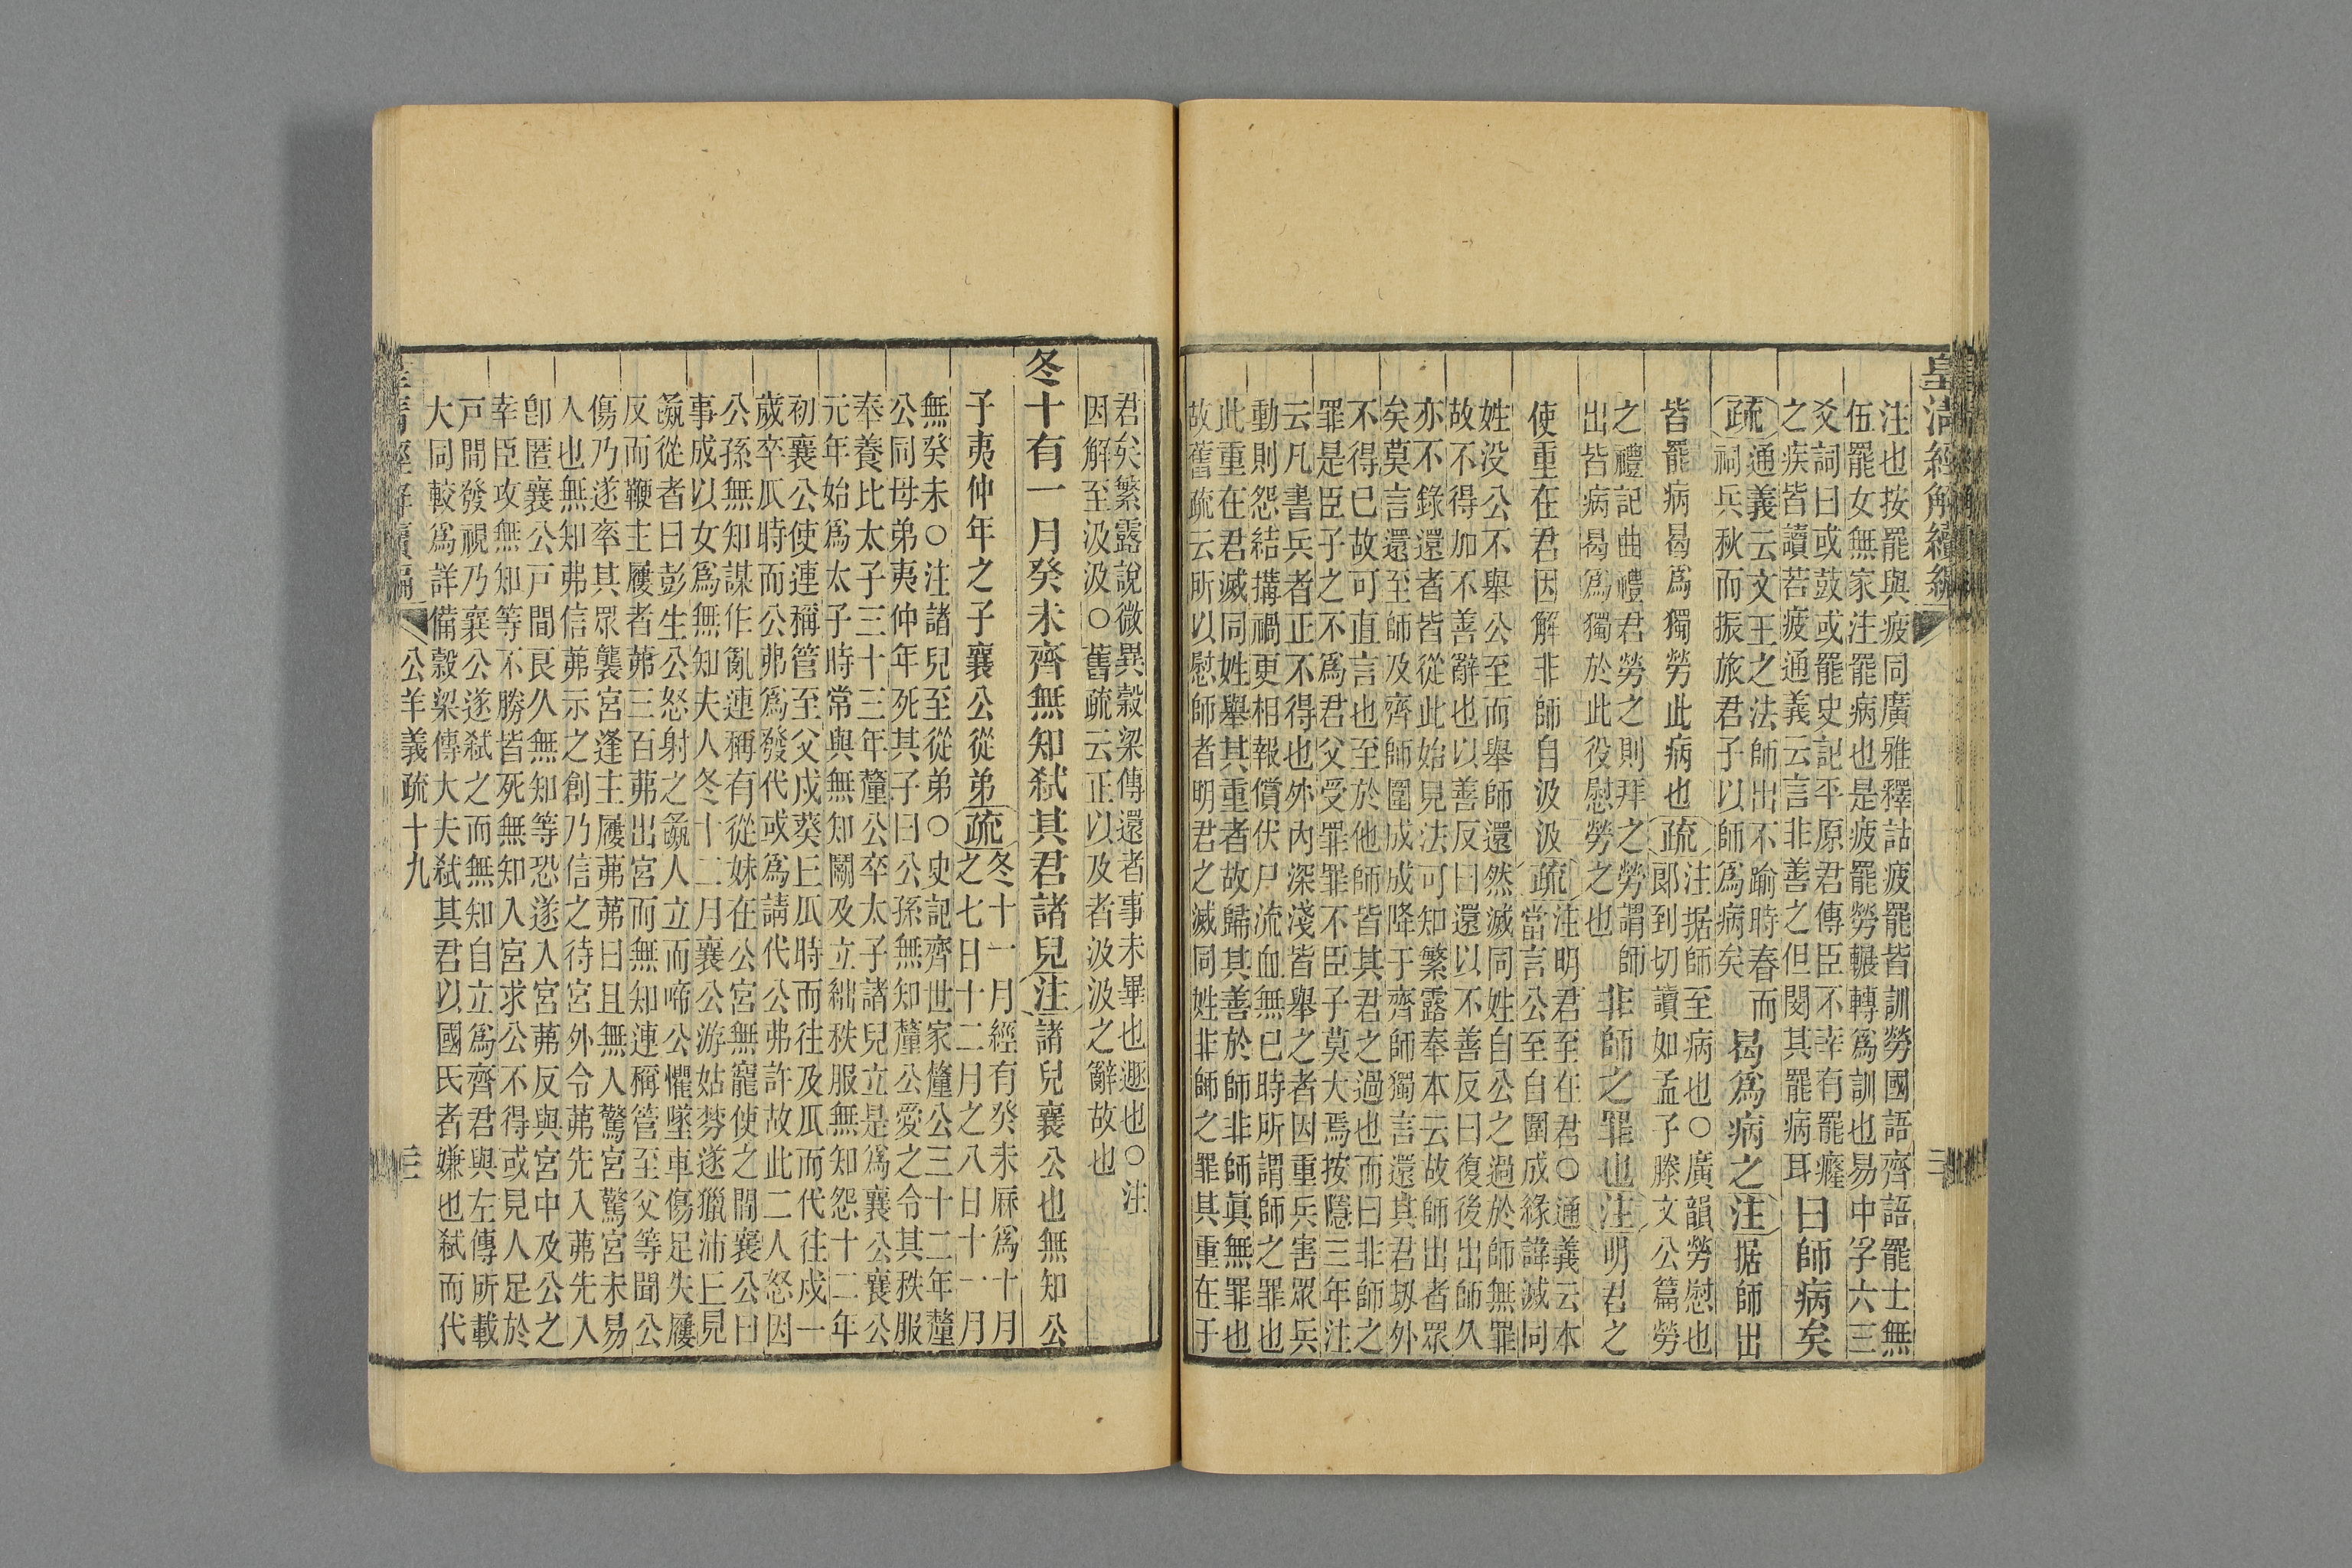 皇清經解續編
注也按罷與疲同廣雅釋詁疲罷皆訓勞國語齊語罷士無
伍罷女無家注罷病也是疲罷勞輾轉爲訓也易中孚六三
爻詞曰或鼓或罷史記平原君傳臣不幸有罷癃
之疾皆讀若疲通義云言非善之但閔其罷病耳
曰師病矣
疏
通義云文王之法師出不踰時春而
祠兵秋而振旅君子以師爲病矣
曷爲病之注据師出
皆罷病曷爲獨勞此病也疏
注据師至病也○廣韻勞慰也
郎到切讀如孟子滕文公篇勞
之禮記曲禮君勞之則拜之勞謂師
出皆病曷爲獨於此役慰勞之也
非師之罪也注明君之
使重在君因解非師自汲汲疏
注明君至在君○通義云本
當言公至自圍成緣諱滅同
姓没公不舉公至而舉師還然滅同姓自公之過於師無罪
故不得加不善辭也以善反曰還以不善反曰復後出師久
亦不錄還者皆從此始見法可知繁露奉本云故師出者眾
矣莫言還至師及齊師圍成成降于齊師獨言還其君劫外
不得已故可直言也至於他師皆其君之過也而曰非師之
罪是臣子之不爲君父受罪罪不臣子莫大焉按隱三年注
云凡書兵者正不得也外內深淺皆舉之者因重兵害眾兵
動則怨結搆禍更相報償伏尸流血無已時所謂師之罪也
此重在君滅同姓舉其重者故歸其善於師非師眞無罪也
故舊疏云所以慰師者明君之滅同姓非師之罪其重在于
君矣繁露說微異穀梁傳還者事未畢也遯也○注
因解至汲汲○舊疏云正以及者汲汲之辭故也
冬十有一月癸未齊無知弒其君諸兒注諸兒襄公也無知公
子夷仲年之子襄公從弟疏
冬十一月經有癸未厤爲十月
之七日十二月之八日十一月
無癸未○注諸兒至從弟○史記齊世家釐公三十二年釐
公同母弟夷仲年死其子曰公孫無知釐公愛之令其秩服
奉養比太子三十三年釐公卒太子諸兒立是爲襄公襄公
元年始爲太子時常與無知鬬及立絀秩服無知怨十二年
初襄公使連稱管至父戍葵丘瓜時而往及瓜而代往戍一
歲卒瓜時而公弗爲發代或爲請代公弗許故此二人怒因
公孫無知謀作亂連稱有從妹在公宮無寵使之閒襄公曰
事成以女爲無知夫人冬十二月襄公游姑棼遂獵沛丘見
彘從者曰彭生公怒射之彘人立而啼公懼墜車傷足失屨
反而鞭主屨者茀三百茀出宮而無知連稱管至父等聞公
傷乃遂率其眾襲宮逢主屨茀茀曰且無入驚宮驚宮未易
入也無知弗信茀示之創乃信之待宮外令茀先入茀先入
卽匿襄公戸間良久無知等恐遂入宮茀反與宮中及公之
幸臣攻無知等不勝皆死無知入宮求公不得或見人足於
戸閒發視乃襄公遂弒之而無知自立爲齊君與左傳所載
大同較爲詳備穀梁傳大夫弒其君以國氏者嫌也弒而代
公羊義疏十九